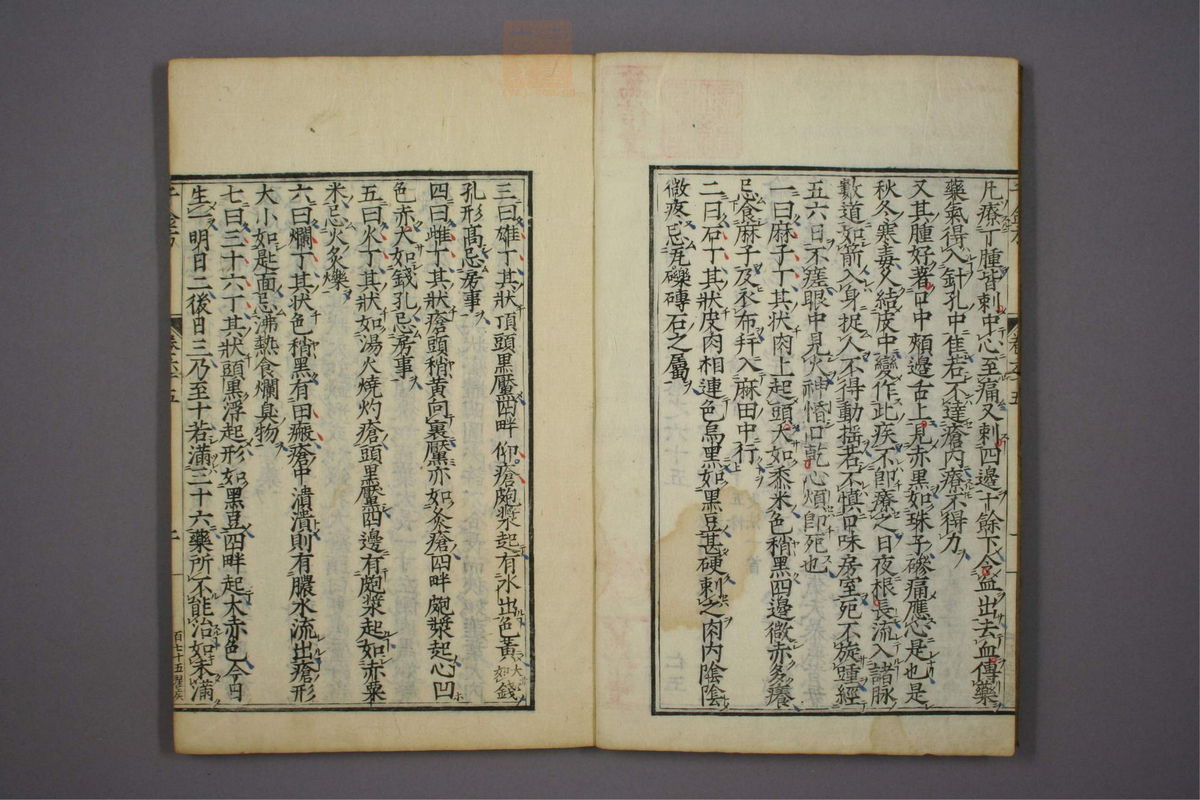 凡療丁腫皆刺中心至痛又刺四邊十餘下令血出去血傅藥
藥氣得入針孔中佳若不達瘡內療不得力
又其腫好著口中頰邊舌上見赤黑如珠子磣痛應心是也是
秋冬寒毒久結皮中變作此疾不即療之日夜根長流入諸脉
數道如箭入身捉人不得動搖若不慎口味房室死不旋踵經
五六日不瘥眼中見火神惛口乾心煩即死也
一曰麻子丁其狀肉上起頭大如黍米色稍黑四邊微赤多癢
忌食麻子及衣布并入麻田中行
二曰石丁其狀皮肉相連色烏黑如黑豆甚硬刺之肉內陰陰
微疼忌瓦礫磚石之屬
三曰雄丁其狀頂頭黑黶四畔仰瘡皰漿起有水出色黃大如錢
孔形高忌房事
四曰雌丁其狀瘡頭稍黃向裏黶亦如灸瘡四畔皰漿起心凹
色赤大如錢孔忌房事
五曰火丁其狀如湯火燒灼瘡頭黑黶四邊有皰漿起如赤粟
米忌火灸爍
六曰爛丁其狀色稍黑有白瘢瘡中潰潰則有膿水流出瘡形
大小如匙面忌沸熱食爛臭物
七曰三十六丁其狀頭黑浮起形如黑豆四畔起大赤色今日
生一明日二後日三乃至十若滿三十六藥所不能治如未滿
百七十五